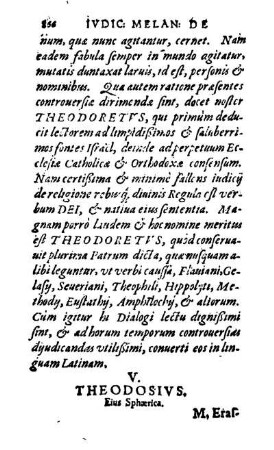 856 IVDIC: MELAN: DE
num, quæ nunc agitantur, cernet. Nam
eadem fabula semper in mundo agitatur,
mutatis duntaxat laruis, id est, personis &
nominibus. Qua autem ratione præsentes
controuersiæ dirimendæ sint, docet noster
THEODORETVS, qui primùm dedu-
cit lectorem ad limpidissimos & saluberri-
mos fontes Israël, deinde ad perpetuum Ec-
clesiæ Catholicæ & Orthodoxæ consensum.
Nam certissima & minimè fallens iudicij
de religione rebusq́; diuinis Regula est ver-
bum DEI, & natiua eius sententia. Ma-
gnam porrò laudem & hoc nomine meritus
est THEODORETVS, quòd conserua-
uit plurima Patrum dicta, quæ nusquam a-
libi leguntur, vt verbi caussa, Flauiani, Ge-
lasij, Seueriani, Theophili, Hippolyti, Me-
thodij, Eustathij, Amphilochij, & aliorum.
Cùm igitur hi Dialogi lectu dignissimi
sint, & ad horum temporum controuersias
dijudicandas vtilissimi, conuerti eos in lin-
guam Latinam.
V.
THEODOSIVS.
Eius Sphærica.
M, Eras-